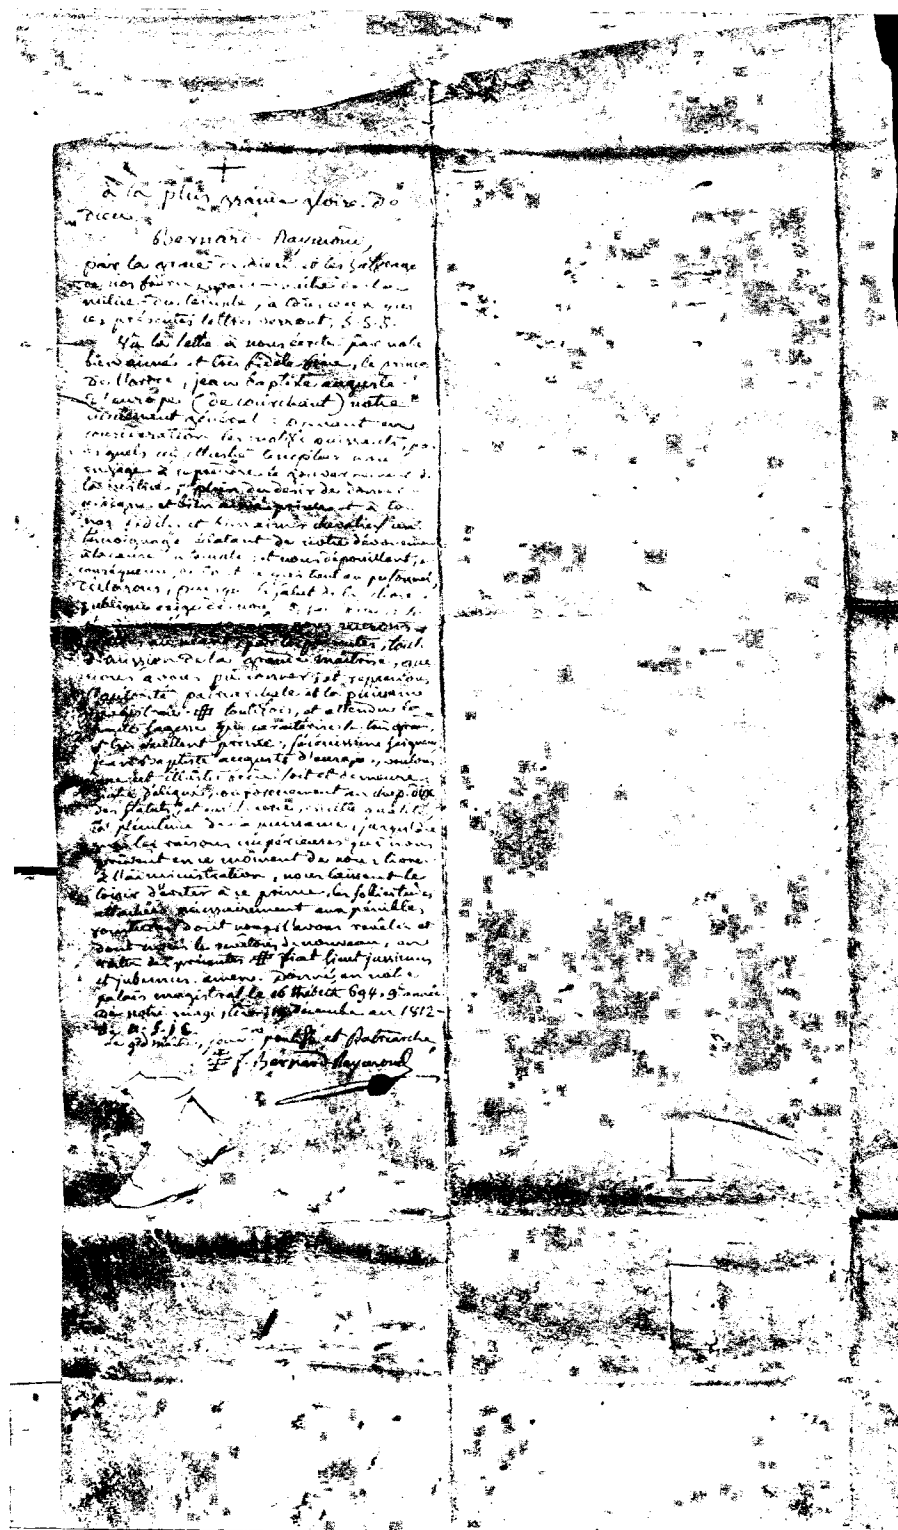 à la plus grande gloire de
Dieu.
Bernard Raymond,
par la grace de dieu et les suffrages
de nos frères, grand maître de la
milice du temple, à tous ceux qui
ces présentes lettres verront, S. S. S.
Vu la lettre à nous écrite par notre
bien aimé et très fidèle frère, le prince
de l'ordre, jean baptiste auguste
d'europe (de courchant) notre
lieutenant général : prenant en
considération les motifs puissants, par
lesquels cet illustre templier nous
engage à reprendre le gouvernement de
la milice, plein du désir de donner
à tous
nos fidèles et bien aimés chevaliers un
témoignage éclatant de notre dévouement
à la cause du temple, et nous dépouillant, en
conséquence, de tout ce qui tient au personnel,
déclarons, puisque le salut de la chose
publique exige de nous
nous retirons
par les présentes, tout
démission de la grande maîtrise, que
nous avons pu donner, et reprenons
l'autorité patriarchale et la puissance
magistrale. toutefois, et attendu la
haute sagesse qui caractérise le très grand
et très excellent prince, sérénissime seigneur
jean baptiste auguste d'europe, voulons
que cet illustre prince soit et demeure
notre délégué, conformément au chap. dix
des statuts, et qu'il exerce, en cette qualité
la plénitude de la puissance, jusqu'à ce
que les raisons impérieuses qui nous
privent en ce moment de nous livrer
à l'administration, nous laissent le
loisir d'éviter à ce prince, les sollicitudes
attachées nécessairement aux pénibles
fonctions dont nous l'avons revêtu et
dont nous le revêtons de nouveau, en
vertu des présentes fiat sicut jussimus
et jubemus. amen. Donné, en notre
palais magistral le 16 thebeth 694, 9e année
de notre magistère, décembre an 1812
de n. S. J. C.
Le gd maître, souvn pontife et Patriarche
f. Bernard Raymond